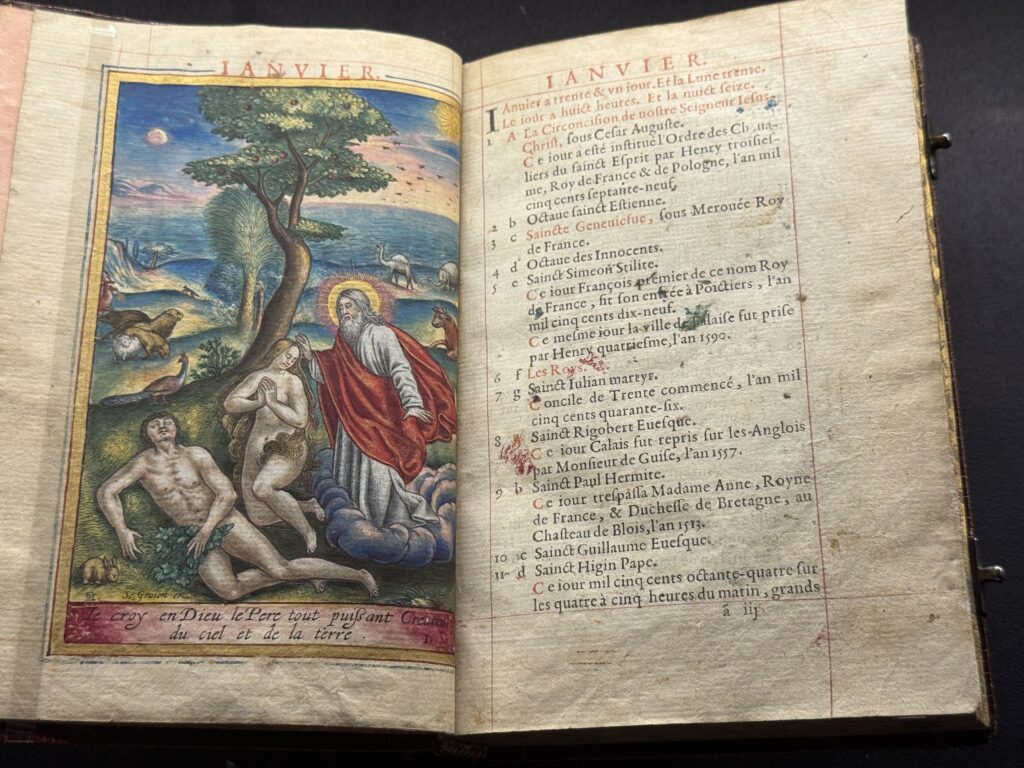 IANVIER.
Ie croy en Dieu le Pere tout puiſsant
du ciel et de la terre.
IANVIER.
IAnuier a trente & vn iour. Et la Lune trente.
Le iour a huict heures. Et la nuict seize.
1 A La Circoncision de nostre Seigneur Iesus-
Christ, sous Cesar Auguste.
Ce iour a esté institué l'Ordre des Cheua-
liers du sainct Esprit par Henry troisies-
me, Roy de France & de Pologne, l'an mil
cinq cents septante-neuf.
2 b Octaue sainct Estienne.
3 c Saincte Geneuiefue, sous Merouée Roy
de France.
4 d Octaue des Innocents.
5 e Sainct Simeon Stilite.
Ce iour François premier de ce nom Roy
de France, fit son entrée à Poictiers, l'an
mil cinq cents dix-neuf.
Ce mesme iour la ville de Falaise fut prise
par Henry quatriesme, l'an 1590.
6 f Les Roys.
7 g Sainct Iulian martyr.
Concile de Trente commencé, l'an mil
cinq cents quarante-six.
8 Sainct Rigobert Euesque.
Ce iour Calais fut repris sur les Anglois
par Monsieur de Guise, l'an 1557.
9 b Sainct Paul Hermite.
Ce iour trespassa Madame Anne, Royne
de France, & Duchesse de Bretagne, au
Chasteau de Blois, l'an 1513.
10 c Sainct Guillaume Euesque.
11 d Sainct Higin Pape.
Ce iour mil cinq cents octante-quatre sur
les quatre à cinq heures du matin, grands
á iij